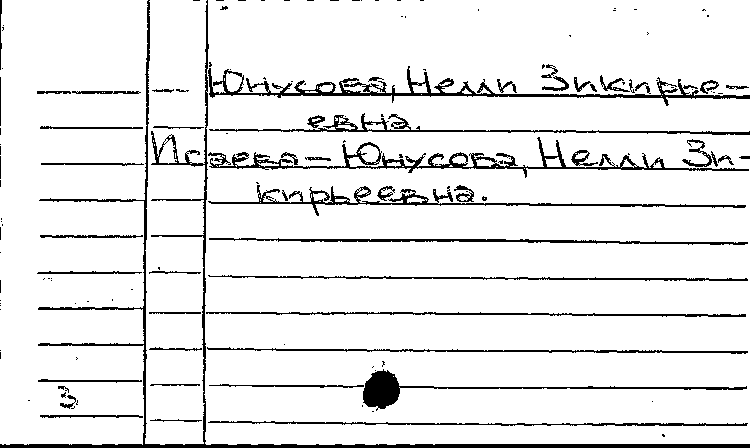 Юнусова, Нелли Зикирье-
евна.
Исаева - Юнусова, Нелли Зи-
кирьеевна.
3